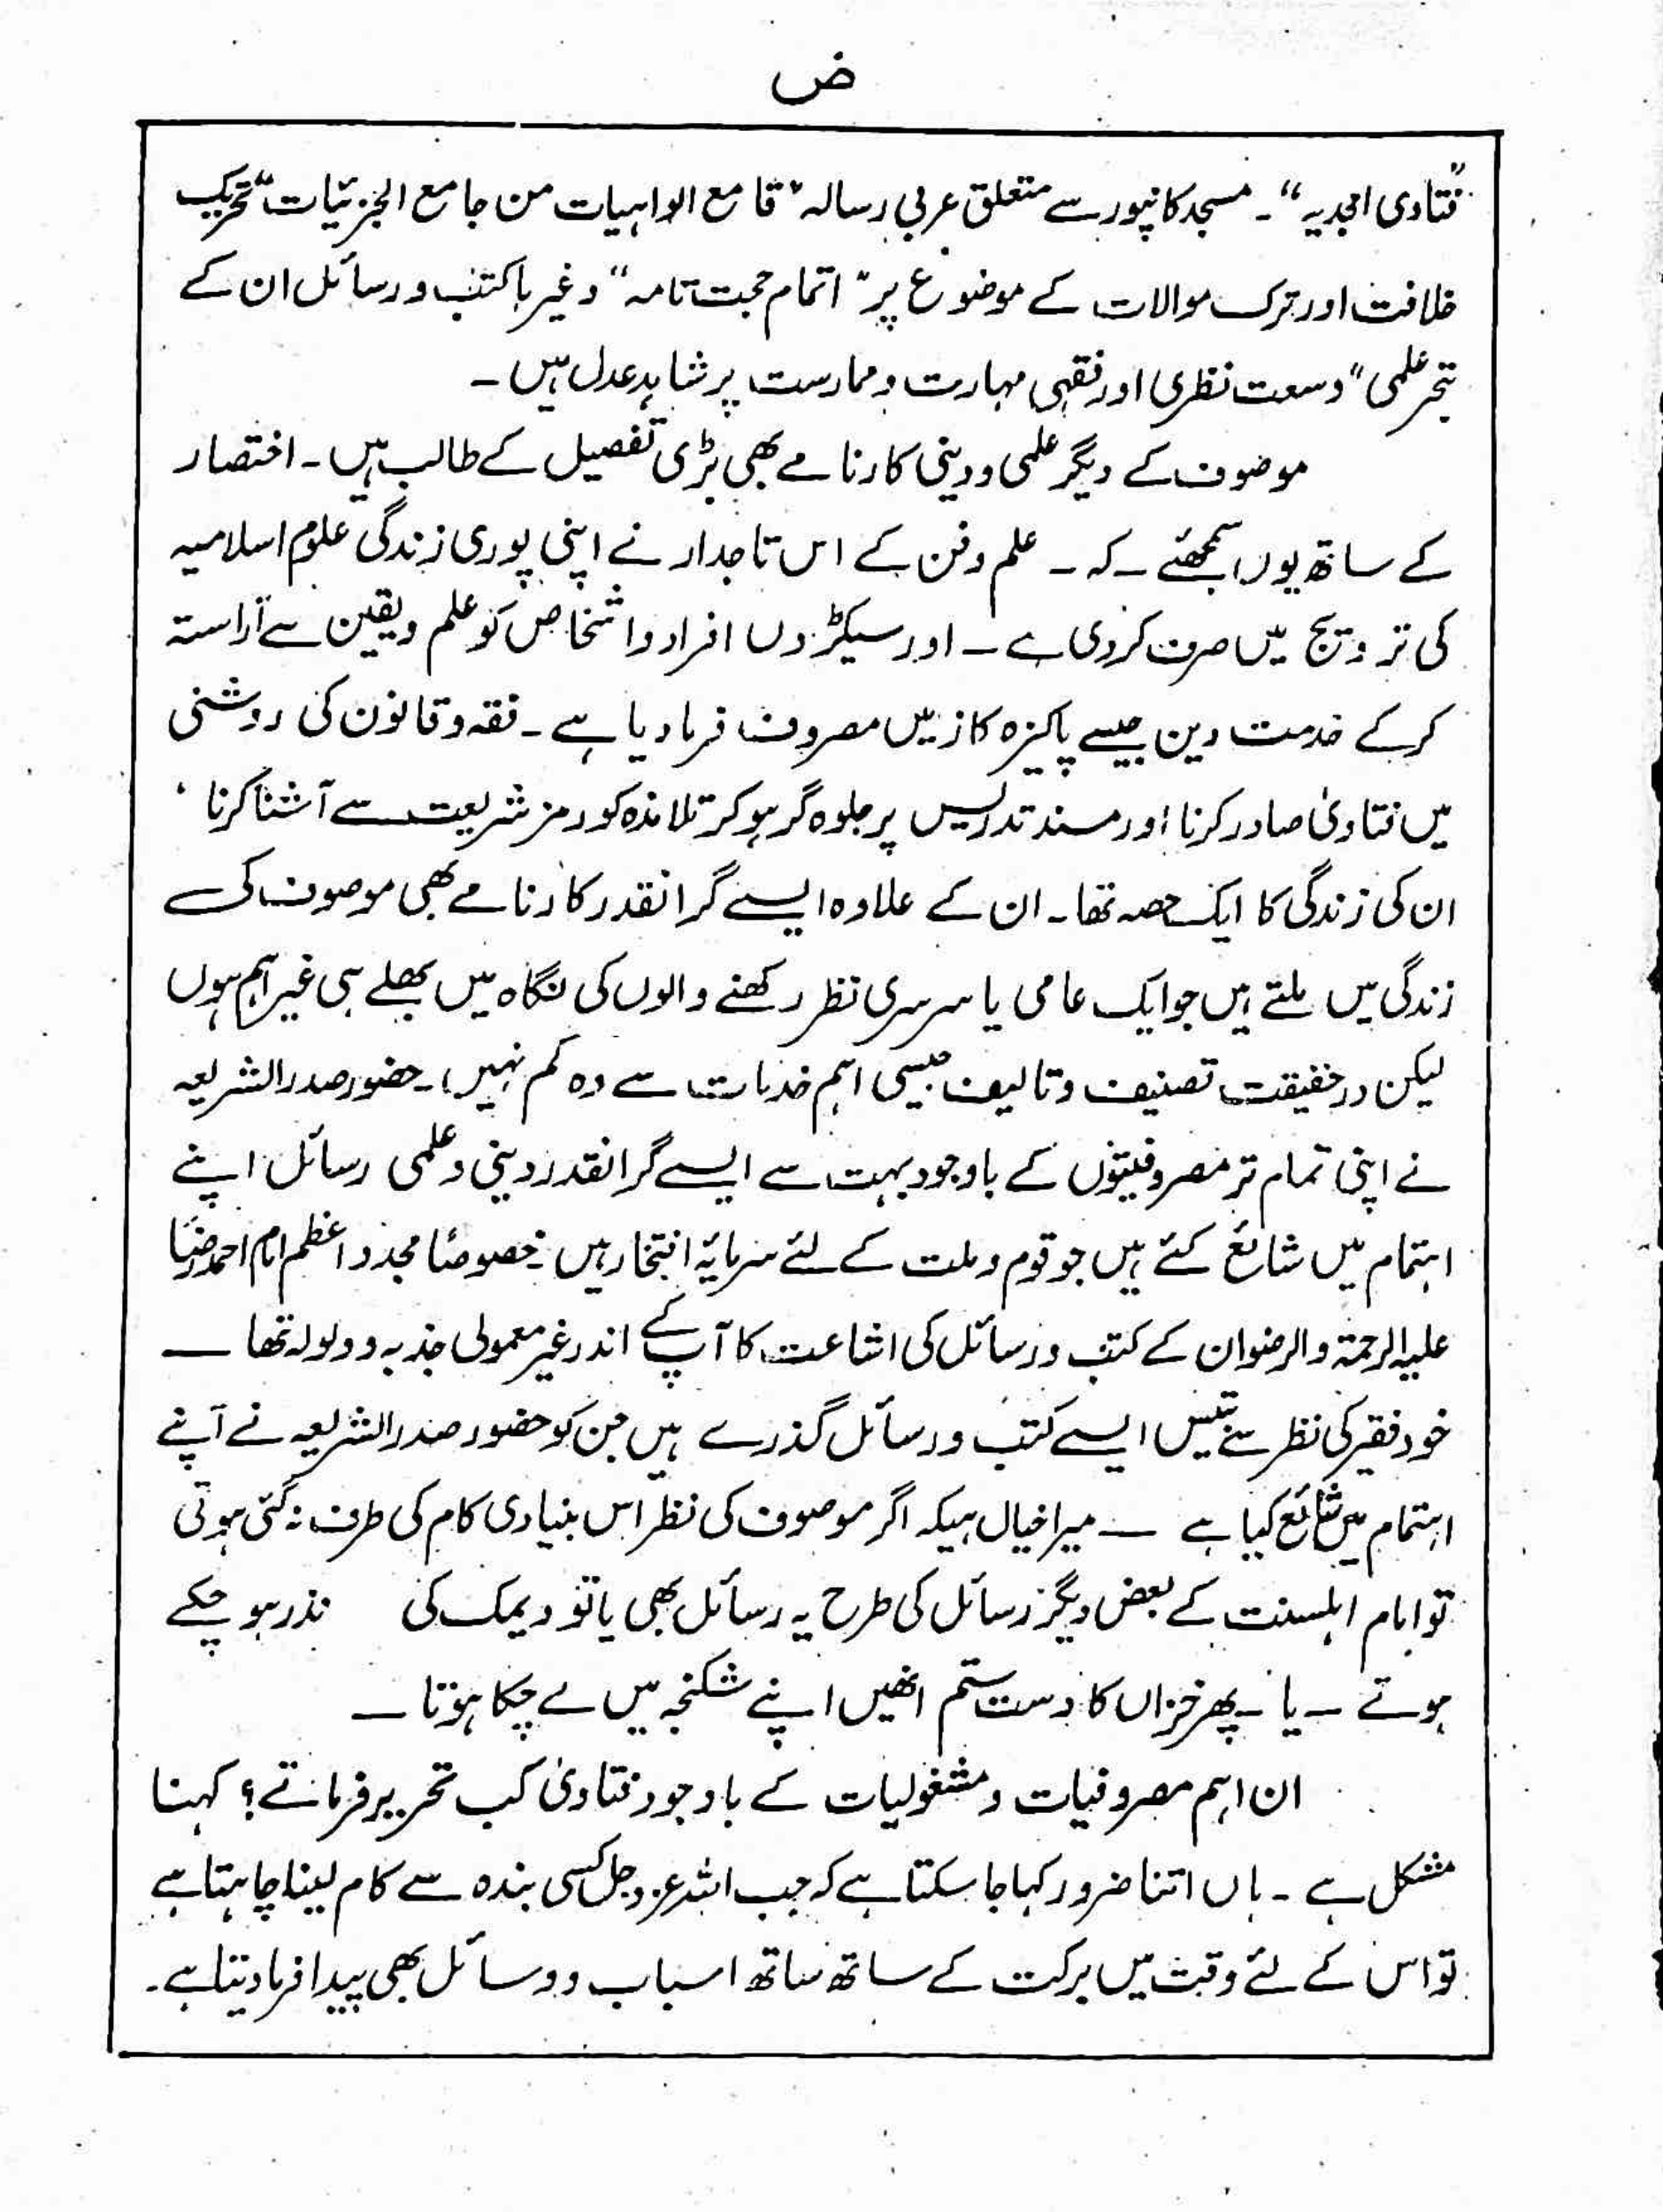 ض
"فتاوی امجدیہ"۔ مسجد کانپور سے متعلق عربی رسالہ "قامع الواہیات من جامع الجزئیات" تحریک
خلافت اور ترک موالات کے موضوع پر "اتمام حجت تامہ" وغیرہا کتب و رسائل ان کے
تبحر علمی" وسعت نظری اور فقہی مہارت و ممارست پر شاہد عدل ہیں۔
موصوف کے دیگر علمی و دینی کارنامے بھی بڑی تفصیل کے طالب ہیں۔ اختصار
کے ساتھ یوں سمجھئے۔ کہ۔ علم و فن کے اس تاجدار نے اپنی پوری زندگی علوم اسلامیہ
کی ترویج میں صرف کردی ہے۔ اور سیکڑوں افراد و اشخاص کو علم و یقین سے آراستہ
کرکے خدمت دین جیسے پاکیزہ کاز میں مصروف فرمادیا ہے۔ فقہ و قانون کی روشنی
میں فتاویٰ صادر کرنا اور مسند تدریس پر جلوہ گر ہوکر تلامذہ کو رمز شریعت سے آشنا کرنا،
ان کی زندگی کا ایک حصہ تھا۔ ان کے علاوہ ایسے گرانقدر کارنامے بھی موصوف کی
زندگی میں ملتے ہیں جو ایک عامی یا سرسری نظر رکھنے والوں کی نگاہ میں بھلے ہی غیر اہم ہوں
لیکن درحقیقت تصنیف و تالیف جیسی اہم خدمات سے وہ کم نہیں۔ حضور صدر الشریعہ
نے اپنی تمام تر مصروفیتوں کے باوجود بہت سے ایسے گرانقدر دینی و علمی رسائل اپنے
اہتمام میں شائع کئے ہیں جو قوم و ملت کے لئے سرمایۂ افتخار ہیں۔ خصوصًا مجدد اعظم امام احمد رضا
علیہ الرحمۃ والرضوان کے کتب و رسائل کی اشاعت کا آپ کے اندر غیر معمولی جذبہ و ولولہ تھا۔
خود فقیر کی نظر سے تیس ایسے کتب و رسائل گذرے ہیں جن کو حضور صدر الشریعہ نے اپنے
اہتمام میں شائع کیا ہے ۔ میرا خیال ہیکہ اگر موصوف کی نظر اس بنیادی کام کی طرف نہ گئی ہوتی
تو امام اہلسنت کے بعض دیگر رسائل کی طرح یہ رسائل بھی یا تو دیمک کی نذر ہو چکے
ہوتے ۔ یا ۔ پھر خزاں کا دست ستم انھیں اپنے شکنجہ میں لے چکا ہوتا۔
ان اہم مصروفیات و مشغولیات کے باوجود فتاویٰ کب تحریر فرماتے؟ کہنا
مشکل ہے ۔ ہاں اتنا ضرور کہا جاسکتا ہے کہ جب اللہ عزوجل کسی بندہ سے کام لینا چاہتا ہے
تو اس کے لئے وقت میں برکت کے ساتھ ساتھ اسباب و وسائل بھی پیدا فرمادیتا ہے۔